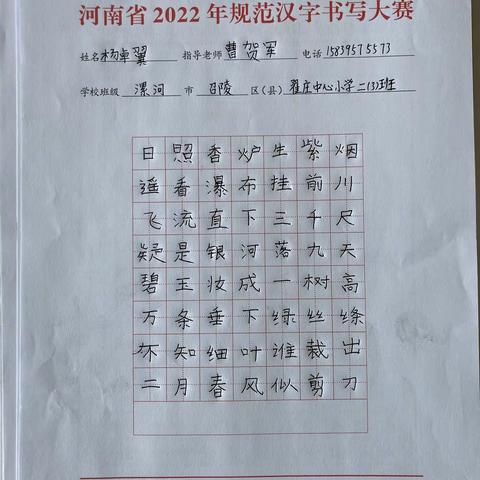 河南省2022年规范汉字书写大赛
姓名 杨卓翼 指导老师 曹贺军 电话 15839575573
学校班级 漯河 市 召陵 区(县) 翟庄中心小学二(3)班
日照香炉生紫烟
遥看瀑布挂前川
飞流直下三千尺
疑是银河落九天
碧玉妆成一树高
万条垂下绿丝绦
不知细叶谁裁出
二月春风似剪刀